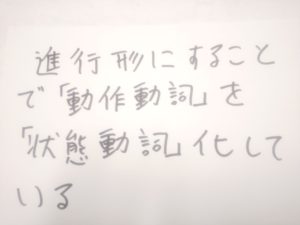 進行形にすること
で「動作動詞」を
「状態動詞」化して
いる